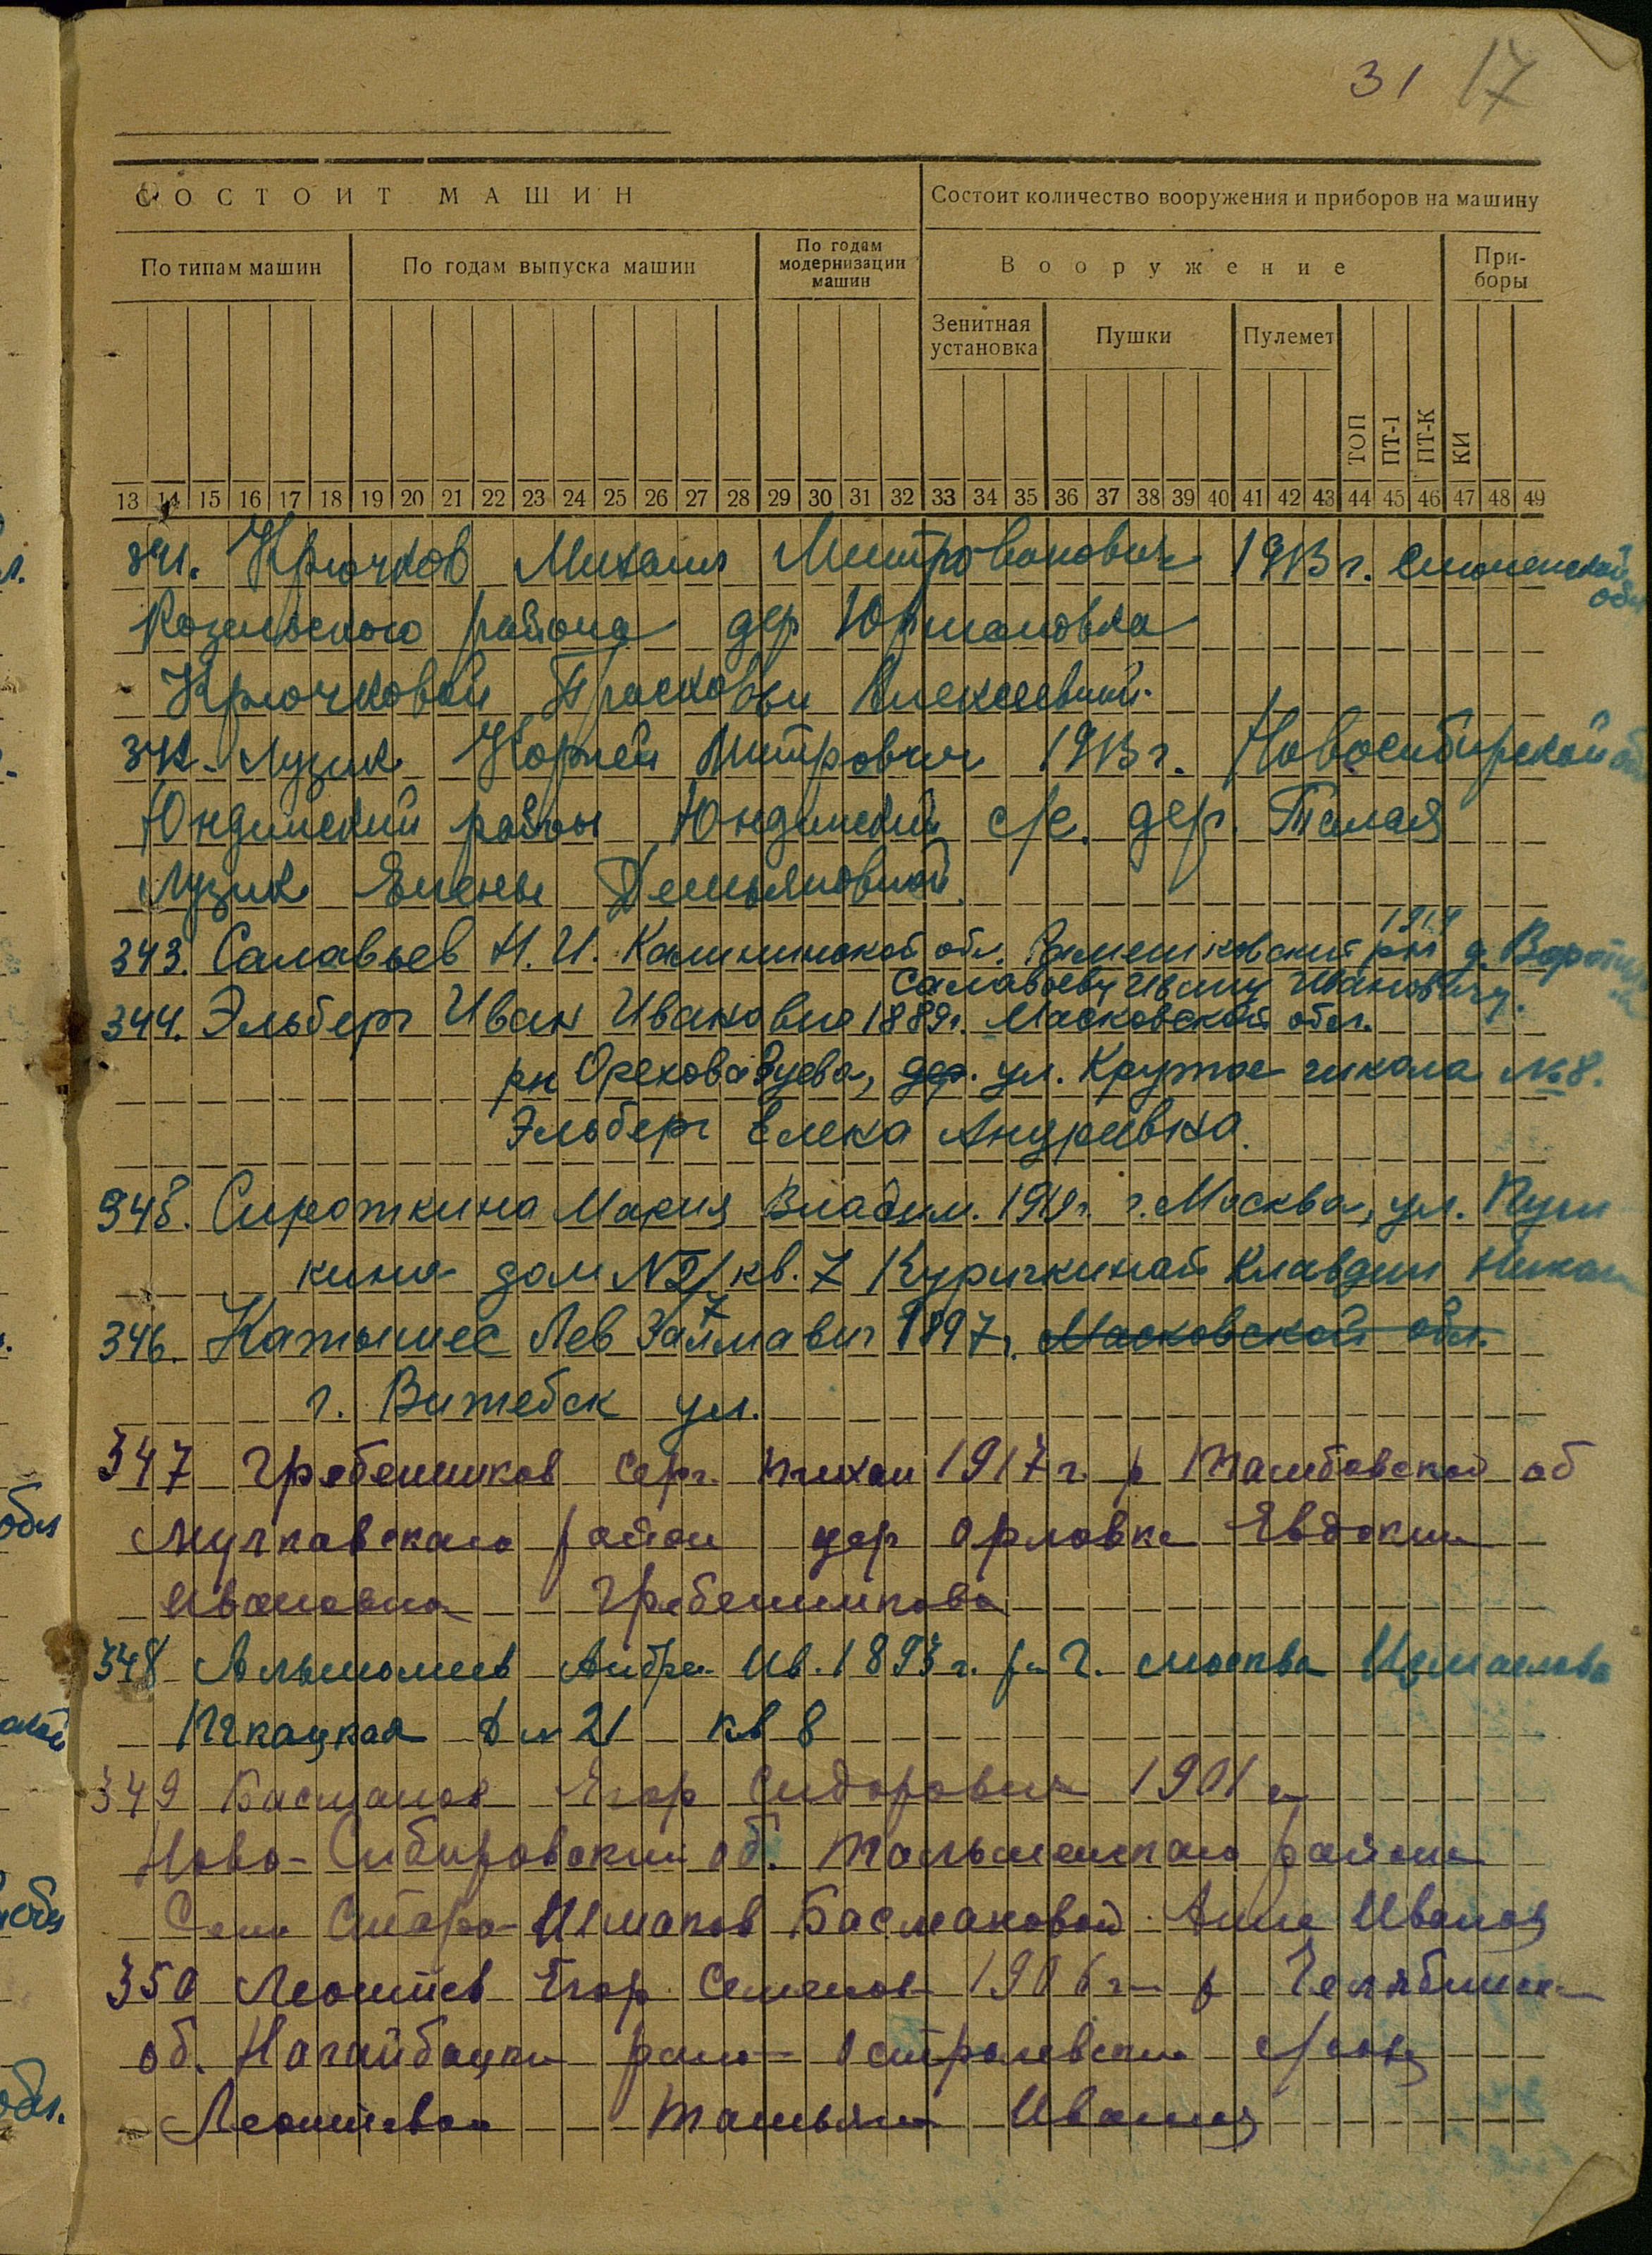 31 17
СОСТОИТ МАШИН
Состоит количество вооружения и приборов на машину
По типам машин
По годам выпуска машин
По годам модернизации машин
Вооружение
При-
боры
Зенитная установка
Пушки
Пулемет
ТОП ПТ-1 ПТ-К КИ
13 14 15 16 17 18 19 20 21 22 23 24 25 26 27 28 29 30 31 32 33 34 35 36 37 38 39 40 41 42 43 44 45 46 47 48 49
341. Крючков Михаил Митрованович 1913 г. Смоленской обл
Козельского района дер Юрмановка
Крючковой Прасковьи Алексеевной.
342. Лузик Корней Митрович 1913 г. Новосибирской об
Юндинский района Юндинский с/с. дер. Талая
Лузик Елены Демьяновной
1914
343. Салавьев Н. И. Калининской обл. рн д.
Салавьеву Ивану Ивановичу.
344. Эльберг Иван Иванович 1889 г. Масковской обл.
рн Орехова Зуева, дер. ул. Крутое школа №8.
Эльберг Елена Андреевна.
345. Сироткина Мария Владим. 1919 г. г. Москва, ул. Пуш
кина дом №21/7 кв. 7 Куричкиной Клавдии Никол
346. Катышес Лев 1897 г. Масковской обл.
г. Витебск ул.
347 Гребенников Серг. Михаи 1917 г. р Тамбовской об
Мучкавскаго район дер Орловке Евдокии
Ивановна Гребенникова
348 Андре. Ив. 1893 г. р. г. Москва Измаелова
д № 21 кв 8
349 Басманов Егор Сидорович 1901 г
Ново-Сибировский об. Тальменскаго района
Село Старо- Басмановой Анне Иванов
350 Леонтев Егор Семенов 1906 г р Челябинск
об. Нагайбацки раио Остроленски с/сов
Леонтева Татьяна Иванна